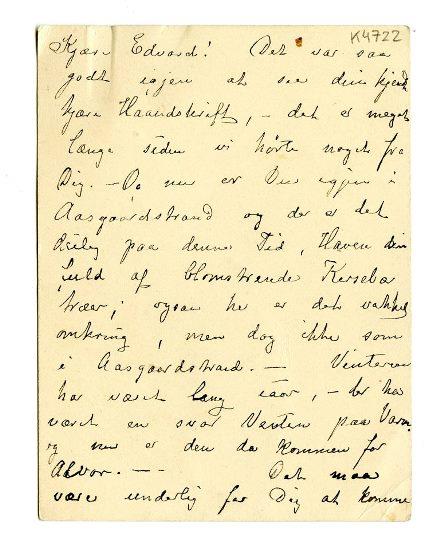 K4722
Kjære Edvard! Det var saa
godt igjen at see din kjendte
kjære Haandskrift, – det er meget
længe siden vi hørte noget fra
Dig. – Og nu er Du igjen i
Aasgaardstrand og der er det
deilig paa denne Tid, Haven din
fuld af blomstrende Kirsebær
træer; ogsaa her er det vakkert
omkring, men dog ikke som
i Aasgaardstrand. – Vinteren
har været lang iaar, – der har
været en svær Venten paa Vaaren
og nu er den da kommen for
Alvor. – – Det maa
være underlig for Dig at komme